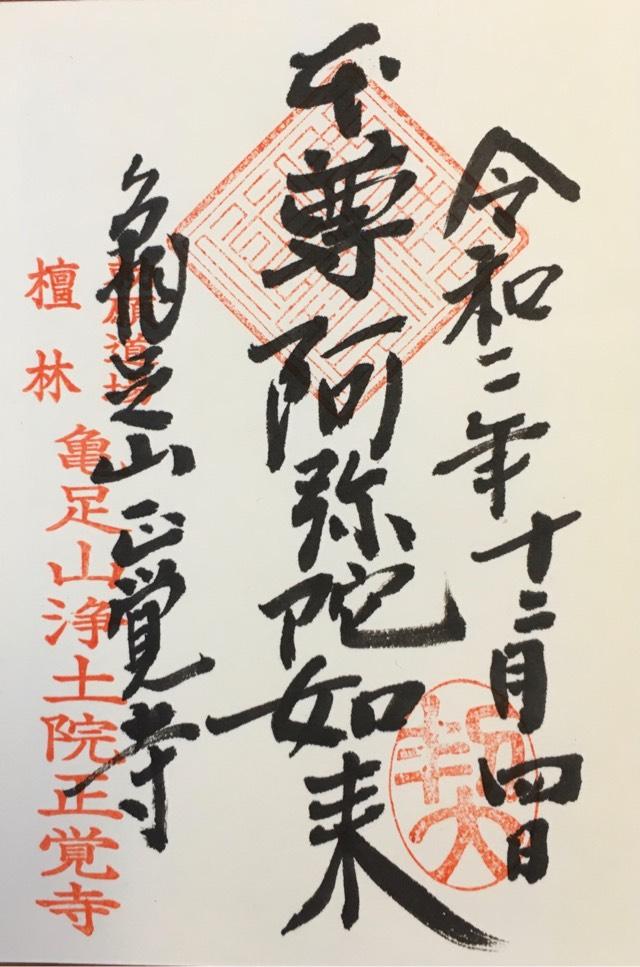 令和二年十二月四日
本尊阿弥陀如来
亀足山正覚寺
檀林
亀足山浄土院正覚寺